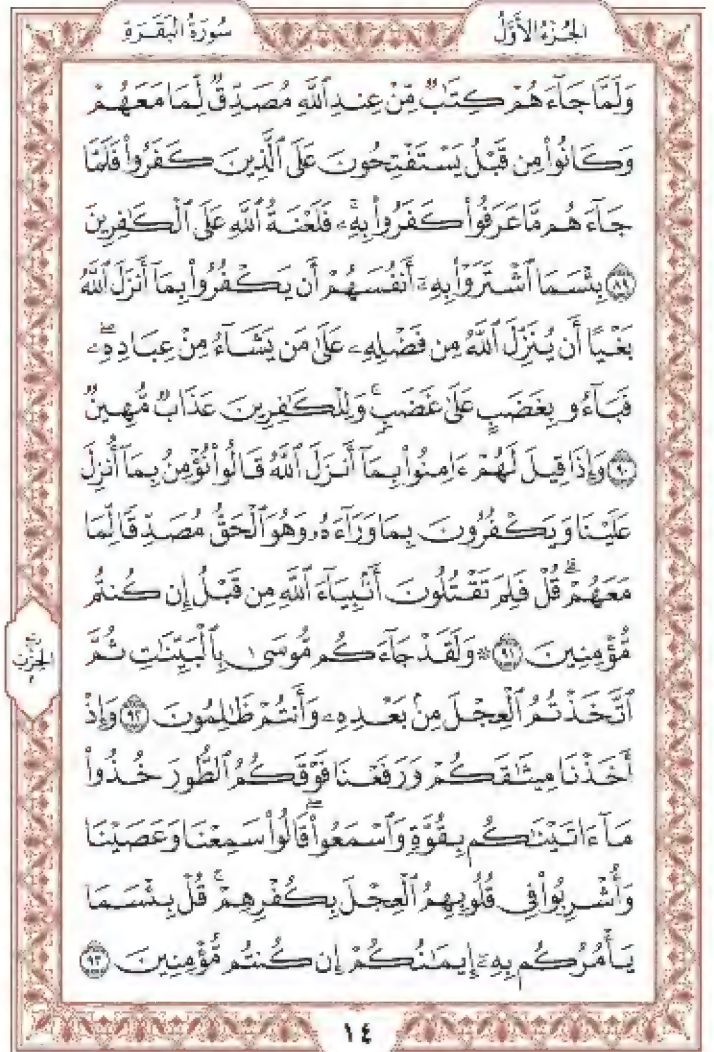 سُورَةُ الْبَقَرَةِ الجُزْءُ الأَوَّلُ
وَلَمَّا جَآءَهُمْ كِتَٰبٌ مِّنْ عِندِ ٱللَّهِ مُصَدِّقٌ لِّمَا مَعَهُمْ
وَكَانُوا۟ مِن قَبْلُ يَسْتَفْتِحُونَ عَلَى ٱلَّذِينَ كَفَرُوا۟ فَلَمَّا
جَآءَهُم مَّا عَرَفُوا۟ كَفَرُوا۟ بِهِۦ ۚ فَلَعْنَةُ ٱللَّهِ عَلَى ٱلْكَٰفِرِينَ
٨٩ بِئْسَمَا ٱشْتَرَوْا۟ بِهِۦٓ أَنفُسَهُمْ أَن يَكْفُرُوا۟ بِمَآ أَنزَلَ ٱللَّهُ
بَغْيًا أَن يُنَزِّلَ ٱللَّهُ مِن فَضْلِهِۦ عَلَىٰ مَن يَشَآءُ مِنْ عِبَادِهِۦ ۖ
فَبَآءُو بِغَضَبٍ عَلَىٰ غَضَبٍ ۚ وَلِلْكَٰفِرِينَ عَذَابٌ مُّهِينٌ
٩٠ وَإِذَا قِيلَ لَهُمْ ءَامِنُوا۟ بِمَآ أَنزَلَ ٱللَّهُ قَالُوا۟ نُؤْمِنُ بِمَآ أُنزِلَ
عَلَيْنَا وَيَكْفُرُونَ بِمَا وَرَآءَهُۥ وَهُوَ ٱلْحَقُّ مُصَدِّقًا لِّمَا
مَعَهُمْ ۗ قُلْ فَلِمَ تَقْتُلُونَ أَنۢبِيَآءَ ٱللَّهِ مِن قَبْلُ إِن كُنتُم
مُّؤْمِنِينَ ٩١ ۞ وَلَقَدْ جَآءَكُم مُّوسَىٰ بِٱلْبَيِّنَٰتِ ثُمَّ
ٱتَّخَذْتُمُ ٱلْعِجْلَ مِنۢ بَعْدِهِۦ وَأَنتُمْ ظَٰلِمُونَ ٩٢ وَإِذْ
أَخَذْنَا مِيثَٰقَكُمْ وَرَفَعْنَا فَوْقَكُمُ ٱلطُّورَ خُذُوا۟
مَآ ءَاتَيْنَٰكُم بِقُوَّةٍ وَٱسْمَعُوا۟ ۖ قَالُوا۟ سَمِعْنَا وَعَصَيْنَا
وَأُشْرِبُوا۟ فِى قُلُوبِهِمُ ٱلْعِجْلَ بِكُفْرِهِمْ ۚ قُلْ بِئْسَمَا
يَأْمُرُكُم بِهِۦٓ إِيمَٰنُكُمْ إِن كُنتُم مُّؤْمِنِينَ ٩٣
رُبع
الحِزْبِ
٢
١٤